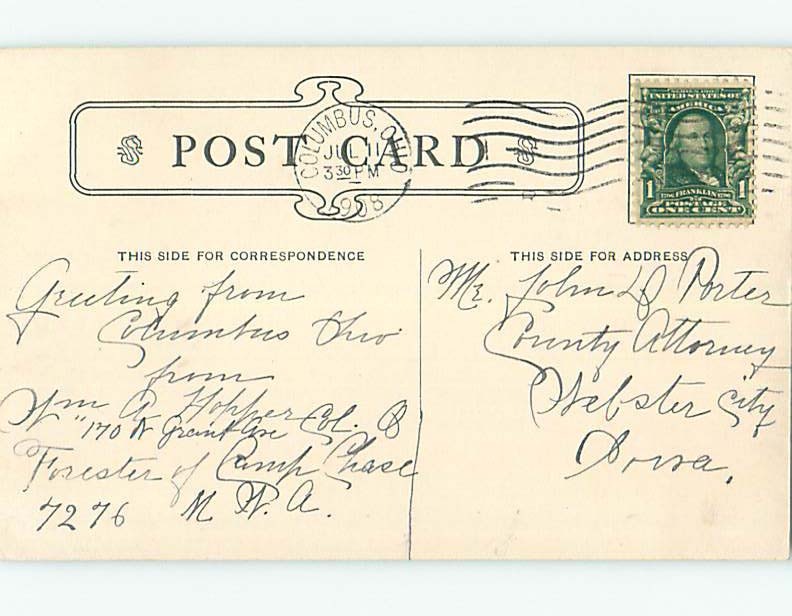 POST CARD
COLUMBUS, OHIO
JUL 11
3 30 PM
1908
SERIES 1902
UNITED STATES OF
AMERICA
1 FRANKLIN 1
POSTAGE
ONE CENT
THIS SIDE FOR CORRESPONDENCE
Greeting from
Columbus Ohio
from
Wm A Hopper Col. O
"170 N Grant Ave
Forester of Camp Chase
7276 M. W. A.
THIS SIDE FOR ADDRESS
Mr. John D Porter
County Attorney
Webster City
Iowa.